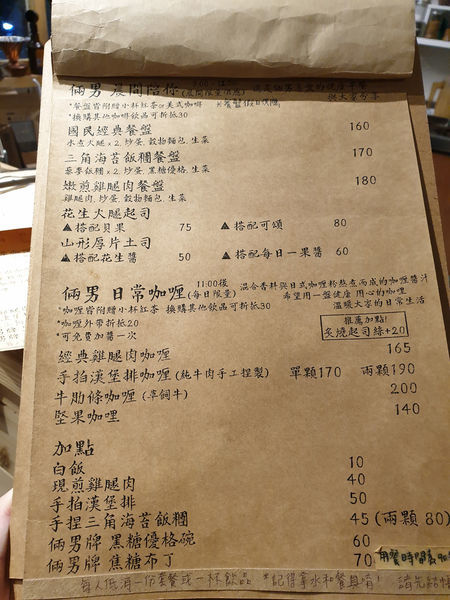 倆男 晨間陪你
*餐盤皆附贈小杯紅茶or美式咖啡
*換購其他咖啡飲品可折抵30
國民經典餐盤 160
水煮火腿x2. 炒蛋. 穀物麵包. 生菜
三角海苔飯糰餐盤 170
藜麥飯糰x2. 炒蛋. 黑糖優格. 生菜
嫩煎雞腿肉餐盤 180
雞腿肉. 炒蛋. 穀物麵包. 生菜
花生火腿起司
▲搭配貝果 75 ▲搭配可頌 80
山形厚片土司
▲搭配花生醬 50 ▲搭配每日一果醬 60
倆男 日常咖喱 11:00後 (每日限量)
混合香料與日式咖哩粉熬煮而成的咖哩醬汁
希望用一盤健康 用心的咖哩
溫暖大家的日常生活
*咖哩皆附贈小杯紅茶 換購其他飲品可折抵30
*咖哩外帶折抵20
*可免費加醬一次
推薦加點!
炙燒起司絲+20
經典雞腿肉咖哩 165
手拍漢堡排咖哩(純牛肉手工捏製) 單顆170 兩顆190
牛肋條咖哩(草飼牛) 200
堅果咖哩 140
加點
白飯 10
現煎雞腿肉 40
手拍漢堡排 50
手捏三角海苔飯糰 45 (兩顆 80)
倆男牌 黑糖優格碗 60
倆男牌 焦糖布丁 70
用餐時間為90
每人低消一份套餐或一杯飲品 *記得拿水和餐具唷! 請先結帳